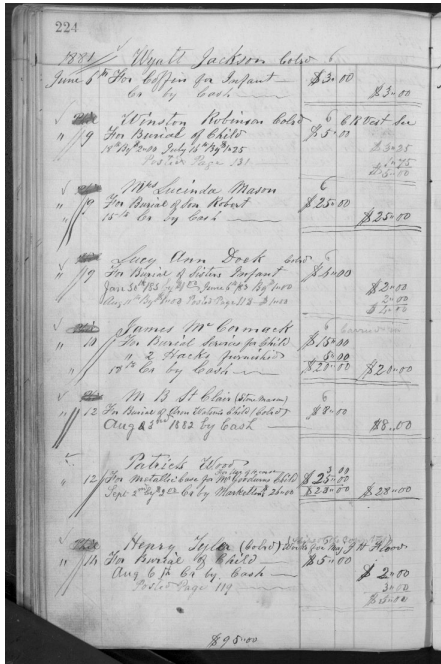 224
1882 Wyatt Jackson Colod 6
June 6th For Coffin for Infant $3.00
Cr by Cash $3.00
Winston Robinson Colod 6 C R Vest Sec
" 9 For Burial of Child $5.00
18th By $2.00 July 15th By $1.25 $3.25
Posted Page 131 1.75
$5.00
Mrs Lucinda Mason 6
" 8 For Burial of Son Robert $25.00
15th Cr by Cash $25.00
Lucy Ann Dock Colod 6
" 9 For Burial of Sisters Infant $4.00
Jan 30th 183 by $1 June 6th 83 By 1.00 $2.00
Aug By $1.00 Posted Page 118 $1.00 2.00
$4.00
James McCormack 6
" 10 For Burial Service for Child $15.00
" 2 Hacks furnished 5.00
18th Cr by Cash $20.00 $20.00
M B St Clair (Stone Mason) 6
" 12 For Burial of Child (Colod) $8.00
Aug 23rd 1882 by Cash $8.00
Patrick Wood
3.00
" 12 For Metallic Case for Mr Child $25.00
Sept 2nd By Cr by 26.00 $28.00 $28.00
Henry Tyler (Colod) Works for Maj J H Flood
" 14 For Burial of Child $5.00
Aug 6th Cr by Cash $2.00
Posted Page 119 3.00
$5.00
$95.00